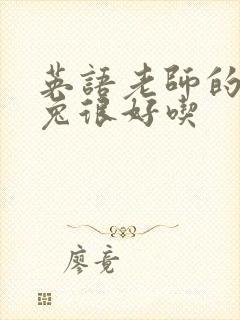 英語老師的
兔很好喫
廖竟